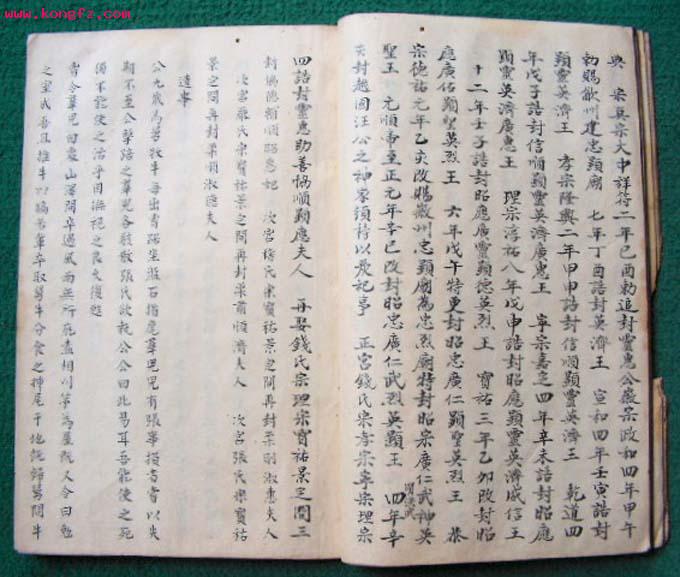 典 宋真宗大中祥符二年己酉勅追封靈惠公徽宗政和四年甲午
勅賜歙州建忠顯廟 七年丁酉誥封英濟王 宣和四年壬寅誥封
顯靈英濟王 孝宗隆興二年甲申誥封信順顯靈英濟王 乾道四
年戊子誥封信順顯靈英濟廣惠王 寧宗嘉定四年辛未誥封昭應
顯靈英濟廣惠王 理宗淳祐八年戊申誥封昭應顯靈英濟威信王
十二年壬子誥封昭應廣靈顯德英烈王 寶祐三年乙卯改封昭
應廣佑顯聖英烈王 六年戊午特更封昭忠廣仁顯聖英烈王 恭
宗德祐元年乙亥改賜徽州忠顯廟為忠烈廟特封昭宗廣仁武神英
聖王 元順帝至正元年辛巳改封昭忠廣仁武烈英顯王 四年辛
亥封越國汪公之神 以 紀事 正宮錢氏宋孝宗寧宗理宗
四誥封靈惠助善協順顯應夫人 再娶錢氏宗理宗寶祐景定間三
封協德順昭惠妃 次宮 氏宋寶祐景定間再封柔則淑惠夫人
次宮 氏宗寶祐景定間再封柔嘉順濟夫人 次宮張氏宗寶祐
景定間再封柔順淑 夫人
遺事
公九歲為 牧牛每出 踞坐 石指麾群兒有 者 以失
期不至公 之群兒各 散張氏 公公曰此易耳吾能使之死
獨不能使之活乎因撫 之良久復甦
嘗令群兒曰 山澤間卒遇風雨無所 盍相 茅為屋既又令曰 勉
之室成吾且椎牛以 若輩 取 牛分食之 尾于地 歸舅問牛
www.kongfz.com